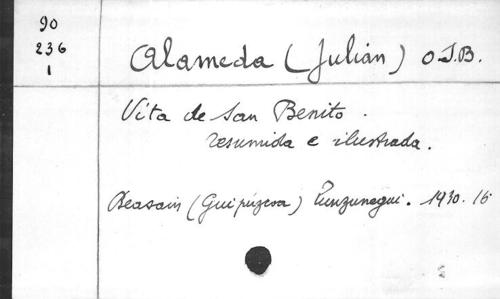 90
236
1
Alameda (Julián) O.S.B.
Vita de San Benito.
resumida e ilustrada.
Beasain (Guipúzcoa) 1930. 16